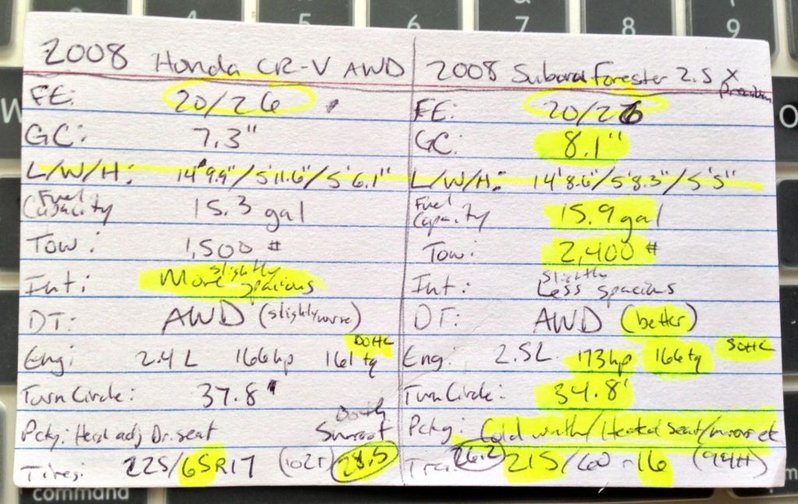 2008 Honda CR-V AWD
FE: 20/26
GC: 7.3"
L/W/H: 14'9.9"/5'11.6"/5'6.1"
Fuel Capacity 15.3 gal
Tow: 1,500 #
Int: More slightly spacious
DT: AWD (slightly worse)
Eng: 2.4 L 166hp 161 tq DOHC
Turn Circle: 37.8'
Pckg: adj Dr. seat Sunroof
Tires: 225/65R17 (102T) 28.5
2008 Subaru Forester 2.5 X Premium
FE: 20/26
GC: 8.1"
L/W/H: 14'8.6"/5'8.3"/5'5"
Fuel Capacity 15.9 gal
Tow: 2,400 #
Int: Slightly Less spacious
DT: AWD (better)
Eng: 2.5L 173hp 166 tq SOHC
Turn Circle: 34.8'
Pckg: Cold wnth/Heated Seat/mirror etc
26.2 215/60-16
command
7
8
9
6
W
O